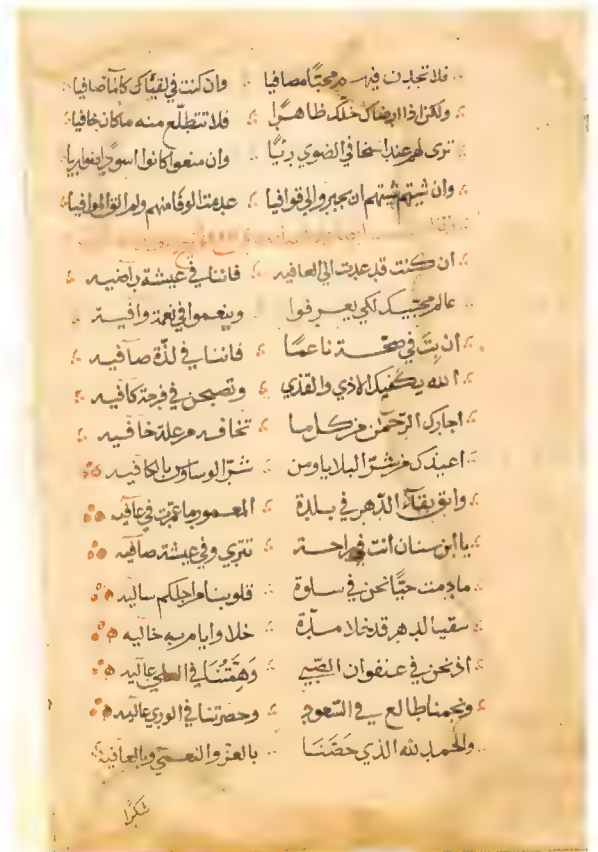 فلا تجدن فيهم محبًّا مصافيا وان كنت في لقياك كاسًا صافيا
ولكن اذا ارضاك خلّك ظاهرًا فلا تتطلّع منه ما كان خافيا
ترى لهم عند في وان منعوا كانوا اسودا
وان شيتهم ان والي قوافيا عدمت الوفا منهم ولم الق الموافيا
ان كنت قد عدت الى العافيه فاننا في عيشة راضيه
عالم محبيك لكي يعرفوا وينعموا في نعمة وافية
ان بتَ في صحّة ناعمًا فاننا في لذّة صافيه
الله يكفيك الاذي والقذي وتصبحن في فرحة كافيه
اجارك الرّحمٰن من كل ما تخافه من علّة خافيه
اعيذك من شرّ البلايا ومن شرّ الوساوس بالكافيه
وابق بقآء الدّهر في بلدة المعمور ما عمّرت في عافيه
يا ابن سنان انت في راحة تتري وفي عيشة صافيه
ما دمت حيًّا نحن في سلوة قلوبنا من اجلكم ساليه
سقيا لدهر قد خلا مدّة خلا وايام به خاليه
اذ نحن في عنفوان الصّبي وَهمّتُنَا في العلي عاليه
ونجمنا طالع في السّعود وحضرتنا في الوري عاليه
والحمد لله الذي خصّنَا بالعزّ والنعمي وبالعافيه
شكرًا